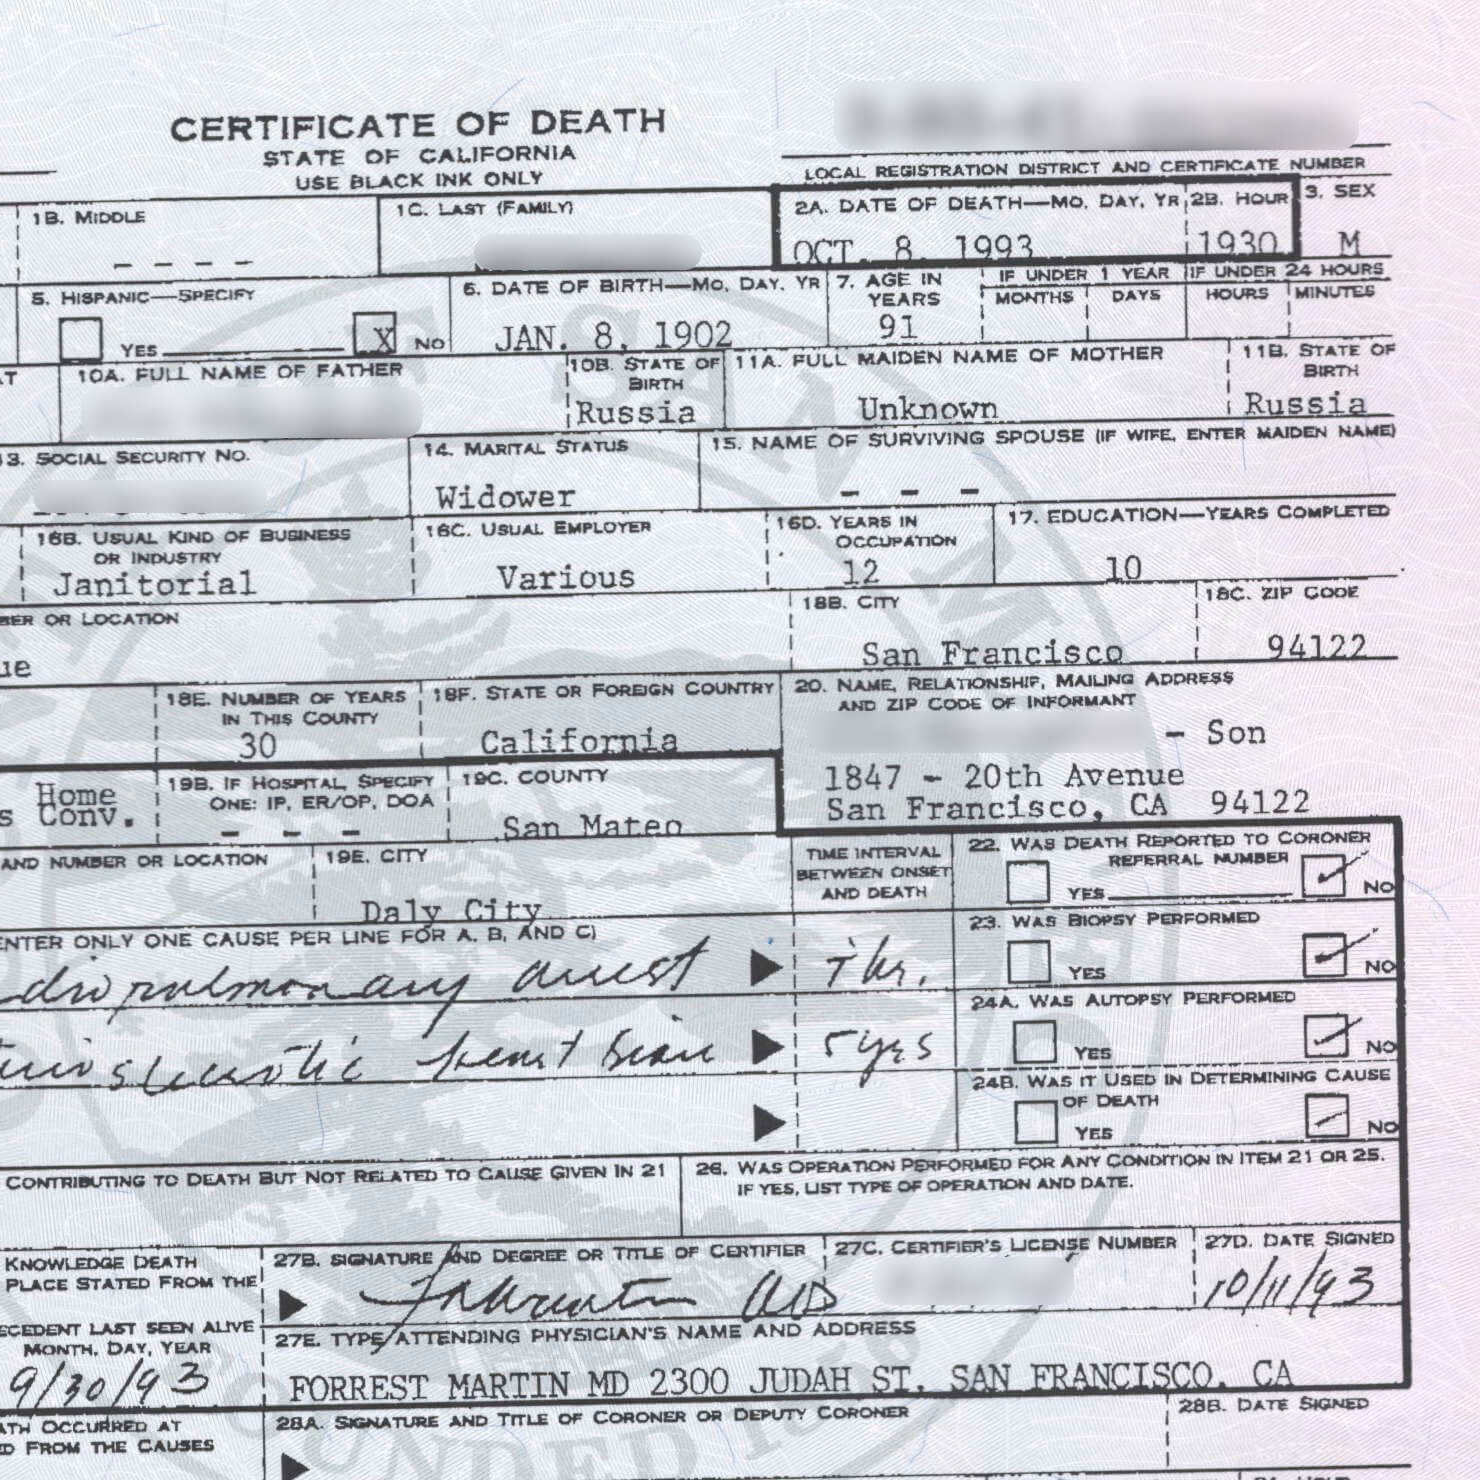 CERTIFICATE OF DEATH
STATE OF CALIFORNIA
USE BLACK INK ONLY
LOCAL REGISTRATION DISTRICT AND CERTIFICATE NUMBER
1B. MIDDLE
- - - -
1C. LAST (FAMILY)
2A. DATE OF DEATH—MO. DAY, YR
OCT. 8, 1993
2B. HOUR
1930
3. SEX
M
5. HISPANIC—SPECIFY
YES X NO
6. DATE OF BIRTH—MO. DAY. YR
JAN. 8, 1902
7. AGE IN
YEARS
91
IF UNDER 1 YEAR
MONTHS DAYS
IF UNDER 24 HOURS
HOURS MINUTES
10A. FULL NAME OF FATHER
10B. STATE OF
BIRTH
Russia
11A. FULL MAIDEN NAME OF MOTHER
Unknown
11B. STATE OF
BIRTH
Russia
13. SOCIAL SECURITY NO.
14. MARITAL STATUS
Widower
15. NAME OF SURVIVING SPOUSE (IF WIFE, ENTER MAIDEN NAME)
- - -
16B. USUAL KIND OF BUSINESS
OR INDUSTRY
Janitorial
16C. USUAL EMPLOYER
Various
16D. YEARS IN
OCCUPATION
12
17. EDUCATION—YEARS COMPLETED
10
BER OR LOCATION
ue
18B. CITY
San Francisco
18C. ZIP CODE
94122
18E. NUMBER OF YEARS
IN THIS COUNTY
30
18F. STATE OR FOREIGN COUNTRY
California
20. NAME, RELATIONSHIP, MAILING ADDRESS
AND ZIP CODE OF INFORMANT
- Son
1847 - 20th Avenue
San Francisco, CA 94122
Home
s Conv.
19B. IF HOSPITAL, SPECIFY
ONE: IP, ER/OP, DOA
- - -
19C. COUNTY
San Mateo
AND NUMBER OR LOCATION
19E. CITY
Daly City
TIME INTERVAL
BETWEEN ONSET
AND DEATH
22. WAS DEATH REPORTED TO CORONER
REFERRAL NUMBER
YES NO
ENTER ONLY ONE CAUSE PER LINE FOR A, B, AND C)
dio pulmonary arrest
23. WAS BIOPSY PERFORMED
YES NO
24A. WAS AUTOPSY PERFORMED
YES NO
5 yrs
24B. WAS IT USED IN DETERMINING CAUSE
OF DEATH
YES NO
CONTRIBUTING TO DEATH BUT NOT RELATED TO CAUSE GIVEN IN 21
26. WAS OPERATION PERFORMED FOR ANY CONDITION IN ITEM 21 OR 25.
IF YES, LIST TYPE OF OPERATION AND DATE.
KNOWLEDGE DEATH
PLACE STATED FROM THE
27B. SIGNATURE AND DEGREE OR TITLE OF CERTIFIER
27C. CERTIFIER'S LICENSE NUMBER
27D. DATE SIGNED
10/11/93
ECEDENT LAST SEEN ALIVE
MONTH, DAY, YEAR
9/30/93
27E. TYPE ATTENDING PHYSICIAN'S NAME AND ADDRESS
FORREST MARTIN MD 2300 JUDAH ST, SAN FRANCISCO, CA
ATH OCCURRED AT
ED FROM THE CAUSES
28A. SIGNATURE AND TITLE OF CORONER OR DEPUTY CORONER
28B. DATE SIGNED